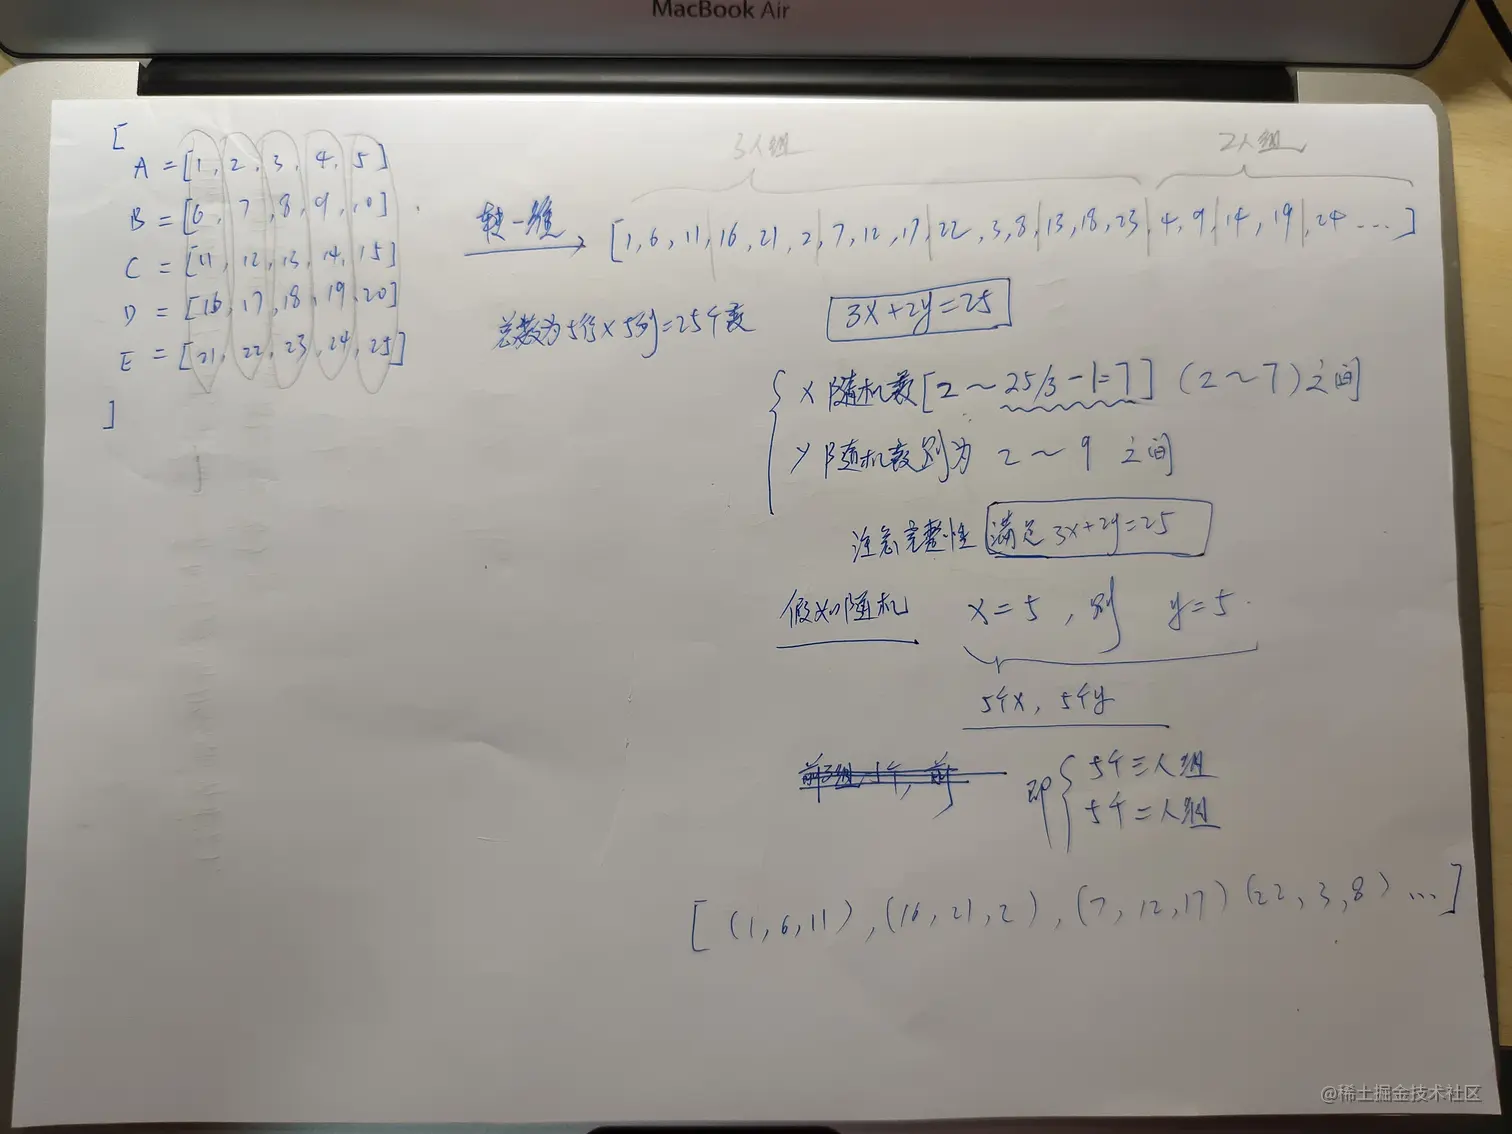 MacBook Air
[
A = [1, 2, 3, 4, 5]
B = [6, 7, 8, 9, 10]
C = [11, 12, 13, 14, 15]
D = [16, 17, 18, 19, 20]
E = [21, 22, 23, 24, 25]
]
3人组
2人组
转一维
[1, 6, 11, 16, 21, 2, 7, 12, 17, 22, 3, 8, 13, 18, 23, 4, 9, 14, 19, 24 ...]
总数为5行×5列=25个数
3x+2y=25
x 随机数[2～25/3-1=7] (2～7)之间
y 随机数则为 2～9 之间
注意完整性 满足 3x+2y=25
假如随机 x=5, 则 y=5.
5个x, 5个y
即
5个三人组
5个二人组
[(1,6,11),(16,21,2),(7,12,17)(22,3,8)...]
@稀土掘金技术社区